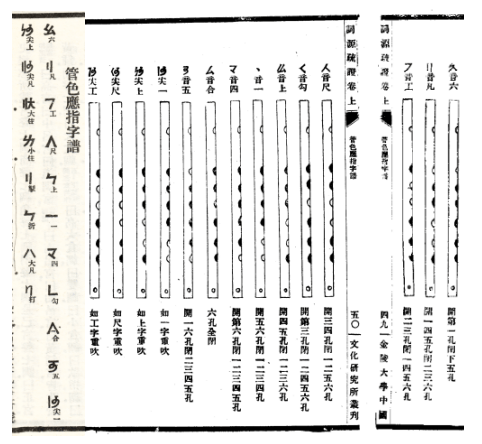 音六 開第一孔閉下五孔
音凡 開一四五孔閉二三六孔
音工 開二三孔閉一四五六孔
詞源疏證卷上 管色應指字譜 四九 金陵大學中國
詞源疏證卷上 管色應指字譜 五〇 文化研究所叢刊
人音尺 開三四孔閉一二五六孔
く音勾 開第三孔閉一二四五六孔
音上 開四五孔閉一二三六孔
、音一 開五六孔閉一二三四孔
マ音四 開第六孔閉一二三四五孔
ム音合 六孔全閉
音五 開一六孔閉二三四五孔
尖一 如一字重吹
尖上 如上字重吹
尖尺 如尺字重吹
尖工 如工字重吹
管色應指字譜
六 凡 工 尺 上 一 四 勾 合 五 尖一
尖上 尖凡 大住 小住 掣 折 大凡 打